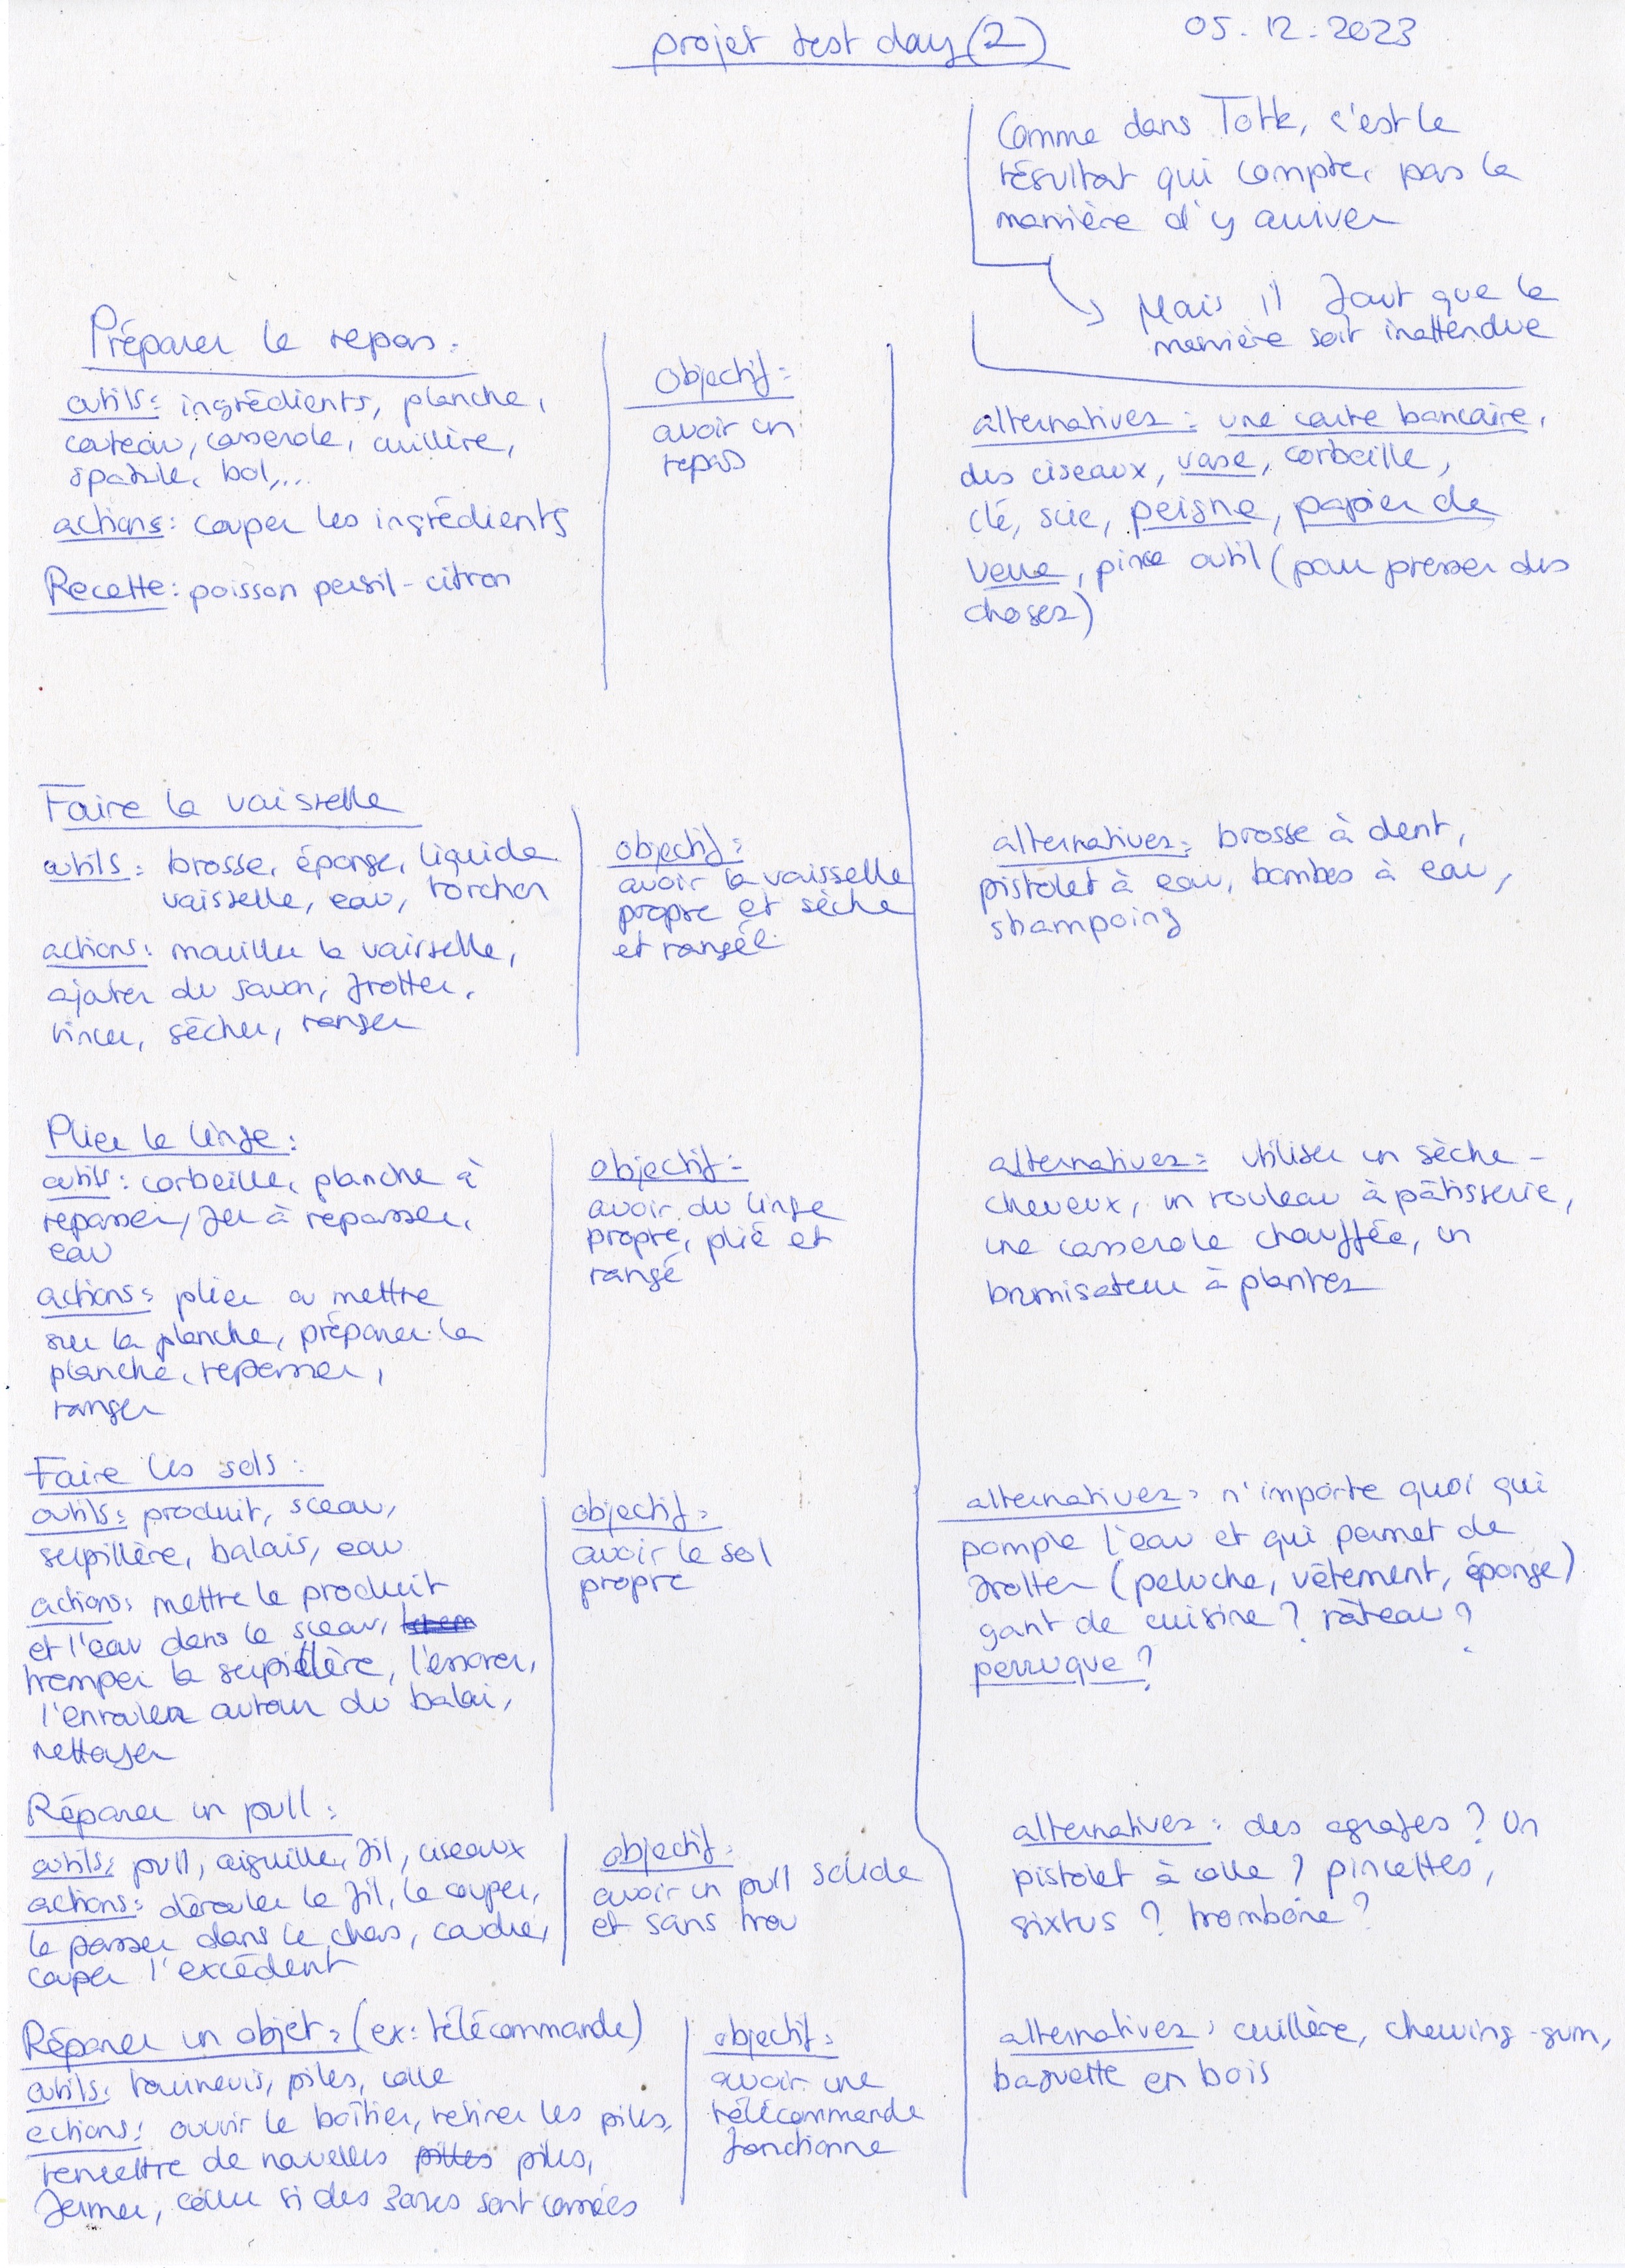 projet test day (2)
05.12.2023
Comme dans Totk, c'est le
résultat qui compte, pas la
manière d'y arriver
Mais il faut que la
manière soit inattendue
Préparer le repas:
outils: ingrédients, planche,
couteau, casserole, cuillère,
spatule, bol,...
actions: couper les ingrédients
Recette: poisson persil-citron
objectif:
avoir un
repas
alternatives: une carte bancaire,
des ciseaux, vase, corbeille,
clé, scie, peigne, papier de
verre, pince outil (pour presser des
choses)
Faire la vaisselle
outils: brosse, éponge, liquide
vaisselle, eau, torchon
actions: mouiller la vaisselle,
ajouter du savon, frotter,
rincer, sécher, ranger
objectif:
avoir la vaisselle
propre et sèche
et rangée.
alternatives: brosse à dent,
pistolet à eau, bombes à eau,
shampoing
Plier le linge:
outils: corbeille, planche à
repasser, fer à repasser,
eau
actions: plier ou mettre
sur la planche, préparer la
planche, repasser,
ranger
objectif:
avoir du linge
propre, plié et
rangé
alternatives: utiliser un sèche-
cheveux, un rouleau à pâtisserie,
une casserole chauffée, un
brumisateur à plantes
Faire les sols:
outils: produit, sceau,
serpillère, balais, eau
actions: mettre le produit
et l'eau dans le sceau,
tremper la serpillère, l'essorer,
l'enrouler autour du balai,
nettoyer
objectif:
avoir le sol
propre
alternatives: n'importe quoi qui
pompe l'eau et qui permet de
frotter (peluche, vêtement, éponge)
gant de cuisine? râteau?
perruque?
Réparer un pull:
outils: pull, aiguille, fil, ciseaux
actions: dérouler le fil, le couper,
le passer dans le chas, coudre,
couper l'excédent
objectif:
avoir un pull solide
et sans trou
alternatives: des agrafes? Un
pistolet à colle? pincettes,
sixtus? trombone?
Réparer un objet: (ex: télécommande)
outils: tournevis, piles, colle
actions: ouvrir le boîtier, retirer les piles,
remettre de nouvelles piles,
fermer, coller si des zones sont cassées
objectif:
avoir une
télécommande
fonctionne
alternatives: cuillère, chewing-gum,
baguette en bois